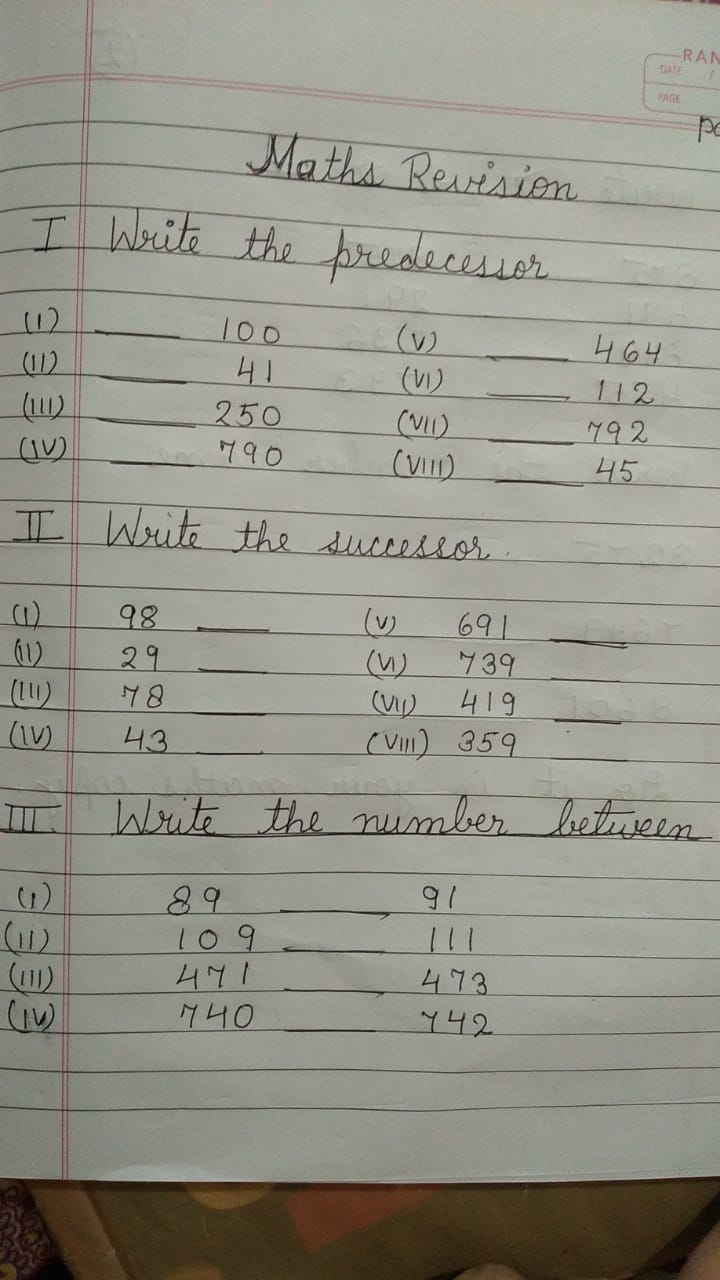 RAN
DATE /
PAGE
Maths Revision
I Write the predecessor
(I) ____ 100 (V) ____ 464
(II) ____ 41 (VI) ____ 112
(III) ____ 250 (VII) ____ 792
(IV) ____ 790 (VIII) ____ 45
II Write the successor.
(I) 98 ____ (V) 691 ____
(II) 29 ____ (VI) 739 ____
(III) 78 ____ (VII) 419 ____
(IV) 43 ____ (VIII) 359 ____
III. Write the number between
(I) 89 ____ 91
(II) 109 ____ 111
(III) 471 ____ 473
(IV) 740 ____ 742